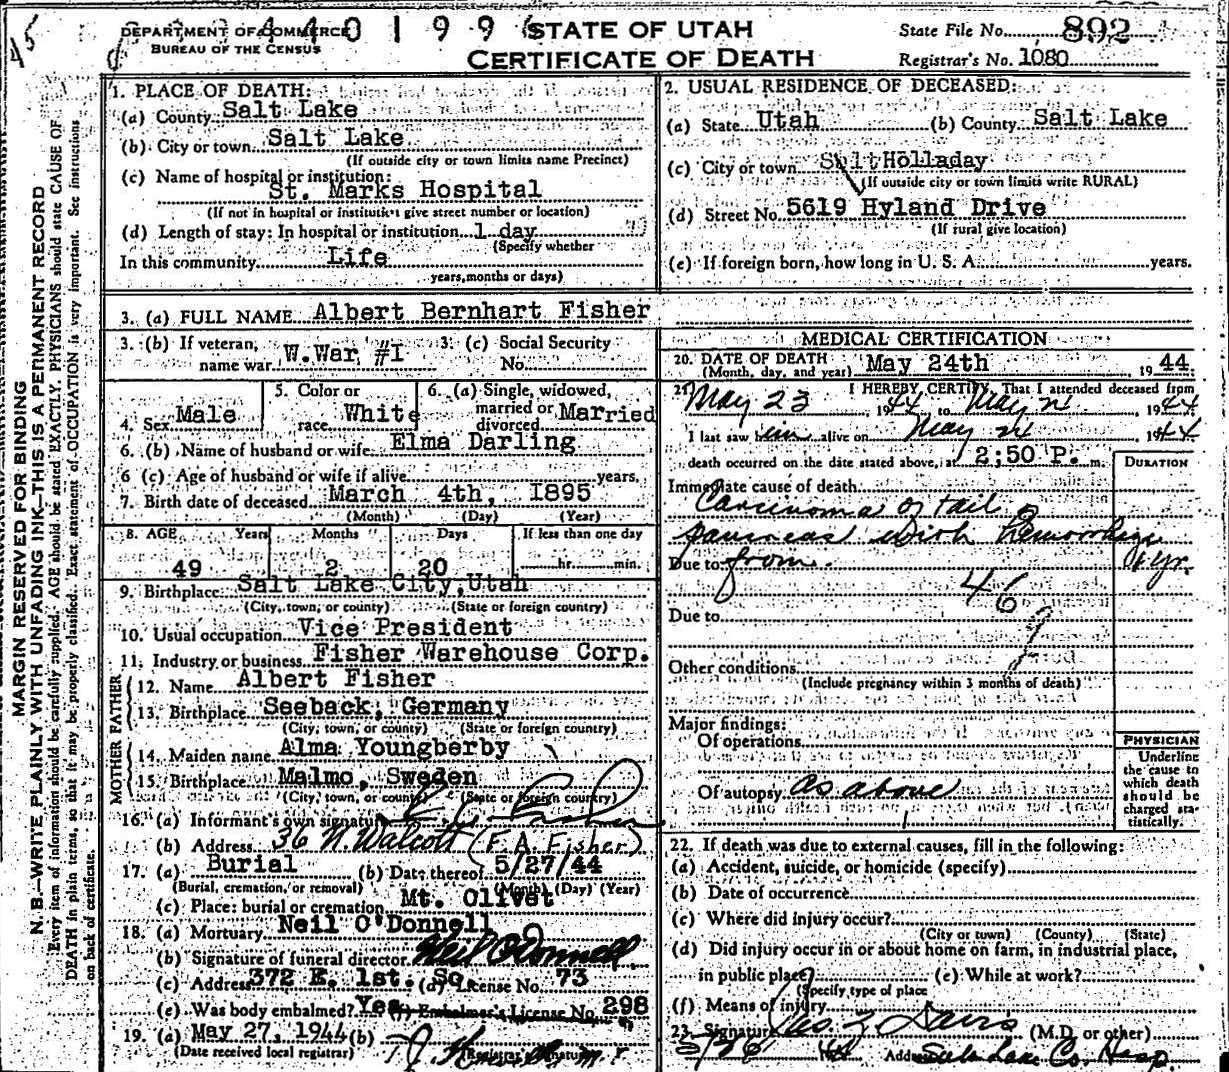 DEPARTMENT OF COMMERCE
BUREAU OF THE CENSUS
STATE OF UTAH
CERTIFICATE OF DEATH
State File No. 892
Registrar's No. 1080
MARGIN RESERVED FOR BINDING
N. B.—WRITE PLAINLY WITH UNFADING INK—THIS IS A PERMANENT RECORD
Every item of information should be carefully supplied. AGE should be stated EXACTLY. PHYSICIANS should state CAUSE OF
DEATH in plain terms, so that it may be properly classified. Exact statement of OCCUPATION is very important. See instructions
on back of certificate.
1. PLACE OF DEATH:
(a) County Salt Lake
(b) City or town Salt Lake
(If outside city or town limits name Precinct)
(c) Name of hospital or institution:
St. Marks Hospital
(If not in hospital or institution give street number or location)
(d) Length of stay: In hospital or institution 1 day
(Specify whether
In this community Life
years, months or days)
2. USUAL RESIDENCE OF DECEASED:
(a) State Utah (b) County Salt Lake
(c) City or town Holladay
(If outside city or town limits write RURAL)
(d) Street No. 5619 Hyland Drive
(If rural give location)
(e) If foreign born, how long in U. S. A. years.
3. (a) FULL NAME Albert Bernhart Fisher
3. (b) If veteran, name war W.War #I 3. (c) Social Security No.
4. Sex Male 5. Color or race White 6. (a) Single, widowed, married or divorced Married
6. (b) Name of husband or wife Elma Darling
6 (c) Age of husband or wife if alive years.
7. Birth date of deceased March 4th, 1895
(Month) (Day) (Year)
8. AGE Years Months Days If less than one day
49 2 20 hr. min.
9. Birthplace Salt Lake City, Utah
(City, town, or county) (State or foreign country)
10. Usual occupation Vice President
11. Industry or business Fisher Warehouse Corp.
FATHER
12. Name Albert Fisher
13. Birthplace Seeback, Germany
(City, town, or county) (State or foreign country)
MOTHER
14. Maiden name Alma Youngberby
15. Birthplace Malmo, Sweden
(City, town, or county) (State or foreign country)
16. (a) Informant's own signature Fisher
(b) Address 36 N. Walcott (F. A. Fisher)
17. (a) Burial (b) Date thereof 5/27/44
(Burial, cremation, or removal) (Month) (Day) (Year)
(c) Place: burial or cremation Mt. Olivet
18. (a) Mortuary Neil O'Donnell
(b) Signature of funeral director Neil O'Donnell
(c) Address 372 E. 1st. So (d) License No. 73
(e) Was body embalmed? Yes (f) Embalmer's License No. 298
19. (a) May 27, 1944 (b)
(Date received local registrar) (Registrar's signature)
MEDICAL CERTIFICATION
20. DATE OF DEATH May 24th, 1944.
(Month, day, and year)
21. I HEREBY CERTIFY, That I attended deceased from
May 23, 1944 to May 24, 1944
I last saw him alive on May 24, 1944
death occurred on the date stated above, at 2:50 P. m.
DURATION
Immediate cause of death
Carcinoma of tail of
pancreas with hemorrhage
Due to from. yr.
46
Due to
Other conditions
(Include pregnancy within 3 months of death)
Major findings:
Of operations
Of autopsy As above
PHYSICIAN
Underline
the cause to
which death
should be
charged sta-
tistically.
22. If death was due to external causes, fill in the following:
(a) Accident, suicide, or homicide (specify)
(b) Date of occurrence
(c) Where did injury occur?
(City or town) (County) (State)
(d) Did injury occur in or about home on farm, in industrial place,
in public place? (e) While at work?
(Specify type of place
(f) Means of injury
23. Signature Davis (M.D. or other)
5/26 44 Address Salt Lake Co. Hosp.